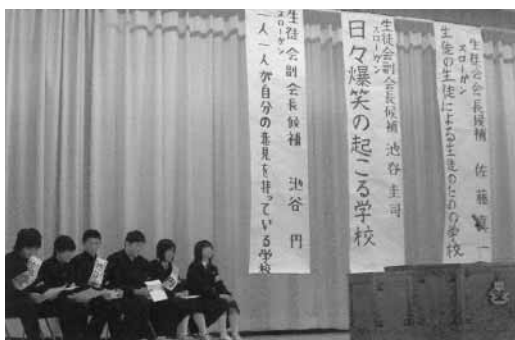 生徒会会長候補 佐藤真一
スローガン
生徒の生徒による生徒のための学校
生徒会副会長候補 池谷圭司
スローガン
日々爆笑の起こる学校
生徒会副会長候補 池谷円
スローガン
一人一人が自分の意見を持っている学校